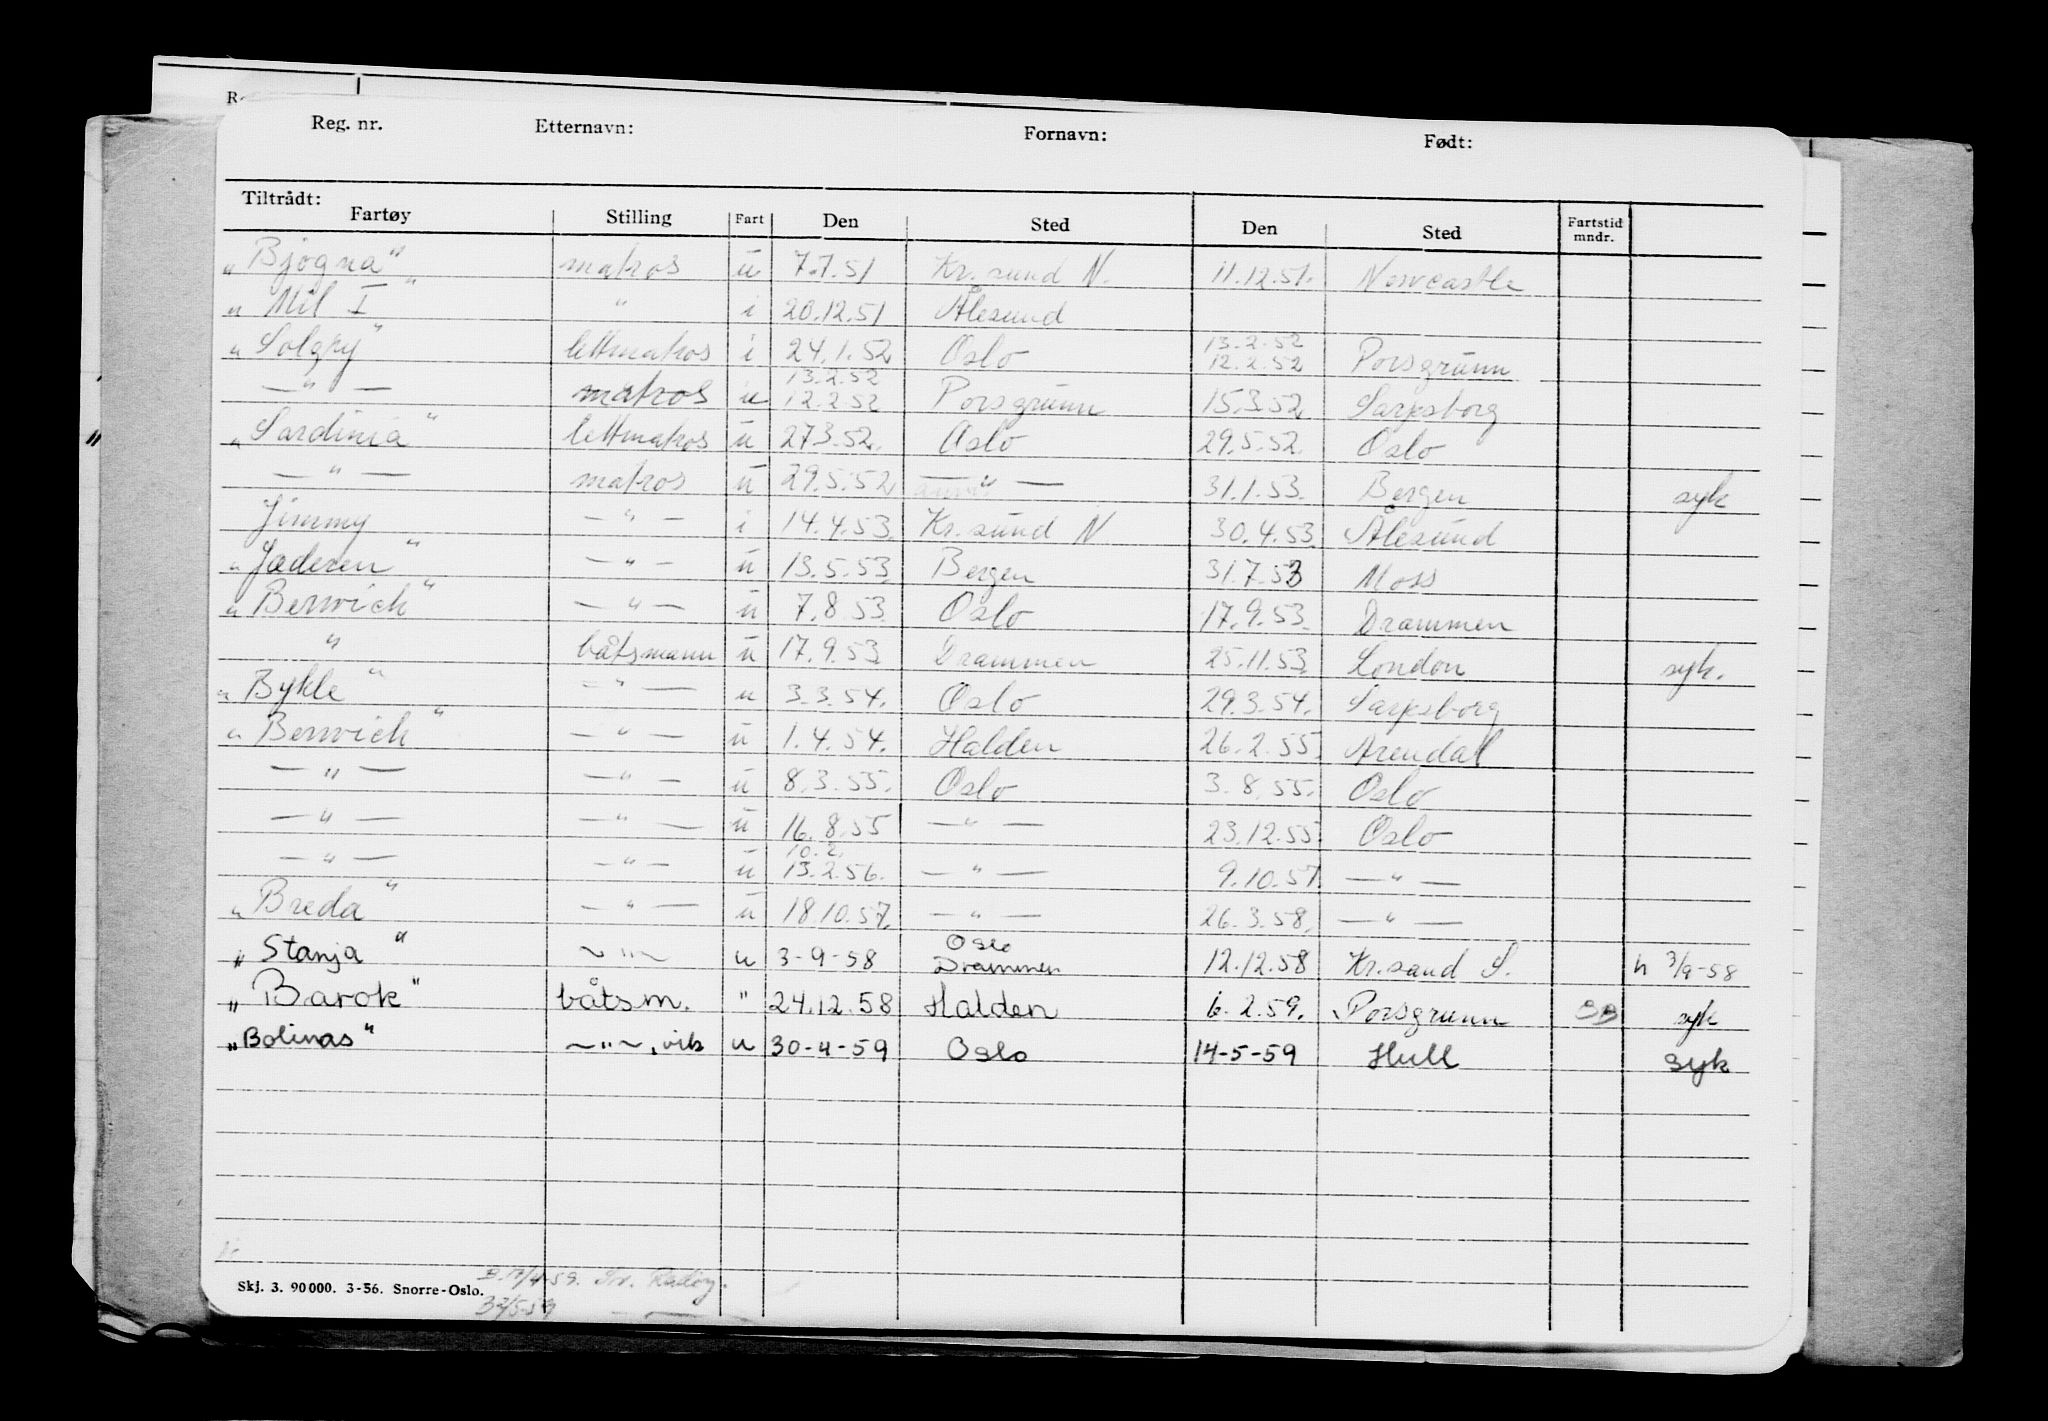 Reg. nr. Etternavn: Fornavn: Født:
Tiltrådt:
Fartøy Stilling Fart Den Sted Den Sted Fartstid mndr.
„Bjøgna" matros u 7.7.51 Kr.sund N. 11.12.51. Newcastle
„Mil I" " i 20.12.51 Ålesund
„Solgry" lettmatros i 24.1.52 Oslo 13.2.52 12.2.52 Porsgrunn
—"— matros u 13.2.52 12.2.52 Porsgrunn 15.3.52 Sarpsborg
„Sardinia" lettmatros u 27.3.52. Oslo 29.5.52. Oslo
—"— matros u 29.5.52 —"— 31.1.53. Bergen syk
Jimmy —"— i 14.4.53. Kr.sund N 30.4.53. Ålesund
„Jæderen" —"— u 13.5.53. Bergen 31.7.53 Moss
„Berwich" —"— u 7.8.53. Oslo 17.9.53. Drammen
" båtsmann u 17.9.53 Drammen 25.11.53. London syk.
„Bykle" —"— u 3.3.54. Oslo 29.3.54. Sarpsborg
„Berwich" —"— u 1.4.54. Halden 26.2.55. Arendal
—"— —"— u 8.3.55. Oslo 3.8.55. Oslo
—"— —"— u 16.8.55 —"— 23.12.55. Oslo
—"— —"— u 10.2. 13.2.56. —"— 9.10.57. —"—
„Breda" —"— u 18.10.57. —"— 26.3.58. —"—
„Stanja" ~"~ u 3-9-58 Oslo Drammen 12.12.58 Kr.sand S. h 3/9-58
„Barok" båtsm. " 24.12.58 Halden 6.2.59. Porsgrunn syk
„Bolinas" ~"~, vik u 30-4-59 Oslo 14-5-59 Hull syk
Skj. 3. 90000. 3-56. Snorre-Oslo.